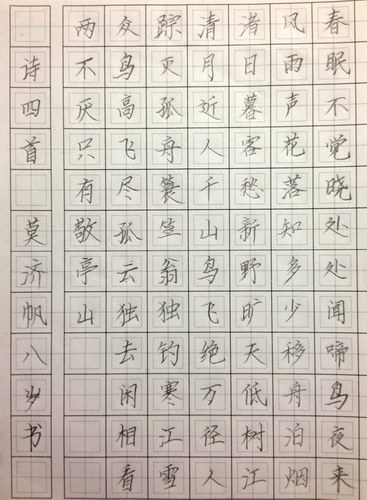 春眠不觉晓处处闻啼鸟夜来
风雨声花落知多少移舟泊烟
渚日暮客愁新野旷天低树江
清月近人千山鸟飞绝万径人
踪灭孤舟蓑笠翁独钓寒江雪
众鸟高飞尽孤云独去闲相看
两不厌只有敬亭山
诗四首 莫济帆八岁书